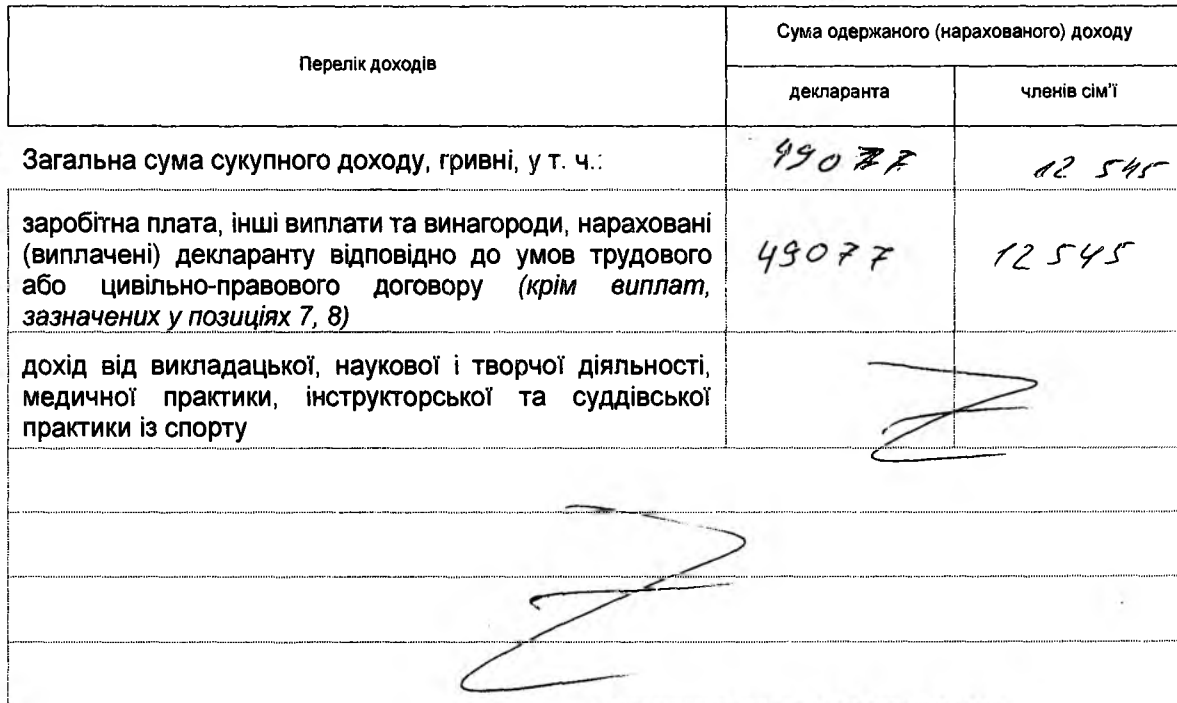 Перелік доходів
Сума одержаного (нарахованого) доходу
декларанта
членів сім'ї
Загальна сума сукупного доходу, гривні, у т. ч.:
49077
12 545
заробітна плата, інші виплати та винагороди, нараховані
(виплачені) декларанту відповідно до умов трудового
або цивільно-правового договору (крім виплат,
зазначених у позиціях 7, 8)
49077
12545
дохід від викладацької, наукової і творчої діяльності,
медичної практики, інструкторської та суддівської
практики із спорту